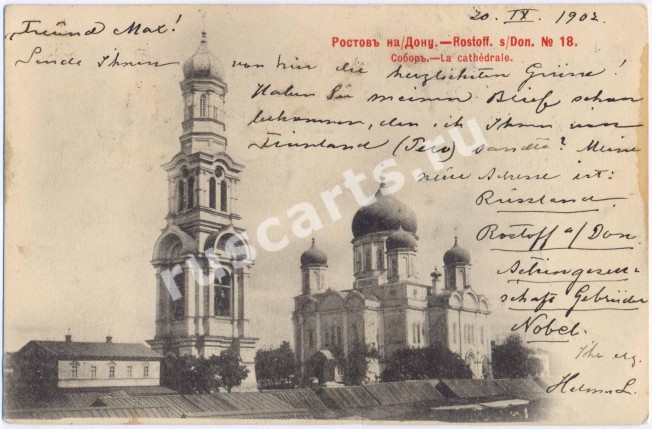 20. IX. 1902.
Freund Max!
Ростовъ на/Дону.—Rostoff. s/Don. № 18.
Соборъ.—La cathédrale.
Sende Ihnen von hier die herzlichsten Grüsse!
Haben Sie meinen Brief schon
bekommen, den ich Ihnen von
Finnland (Terv) sandte? Meine
neue Adresse ist:
Russland.
Rostoff a/Don.
Actiengesell-
schaft Gebrüder
Nobel.
Ihr erg.
ruscarts.ru